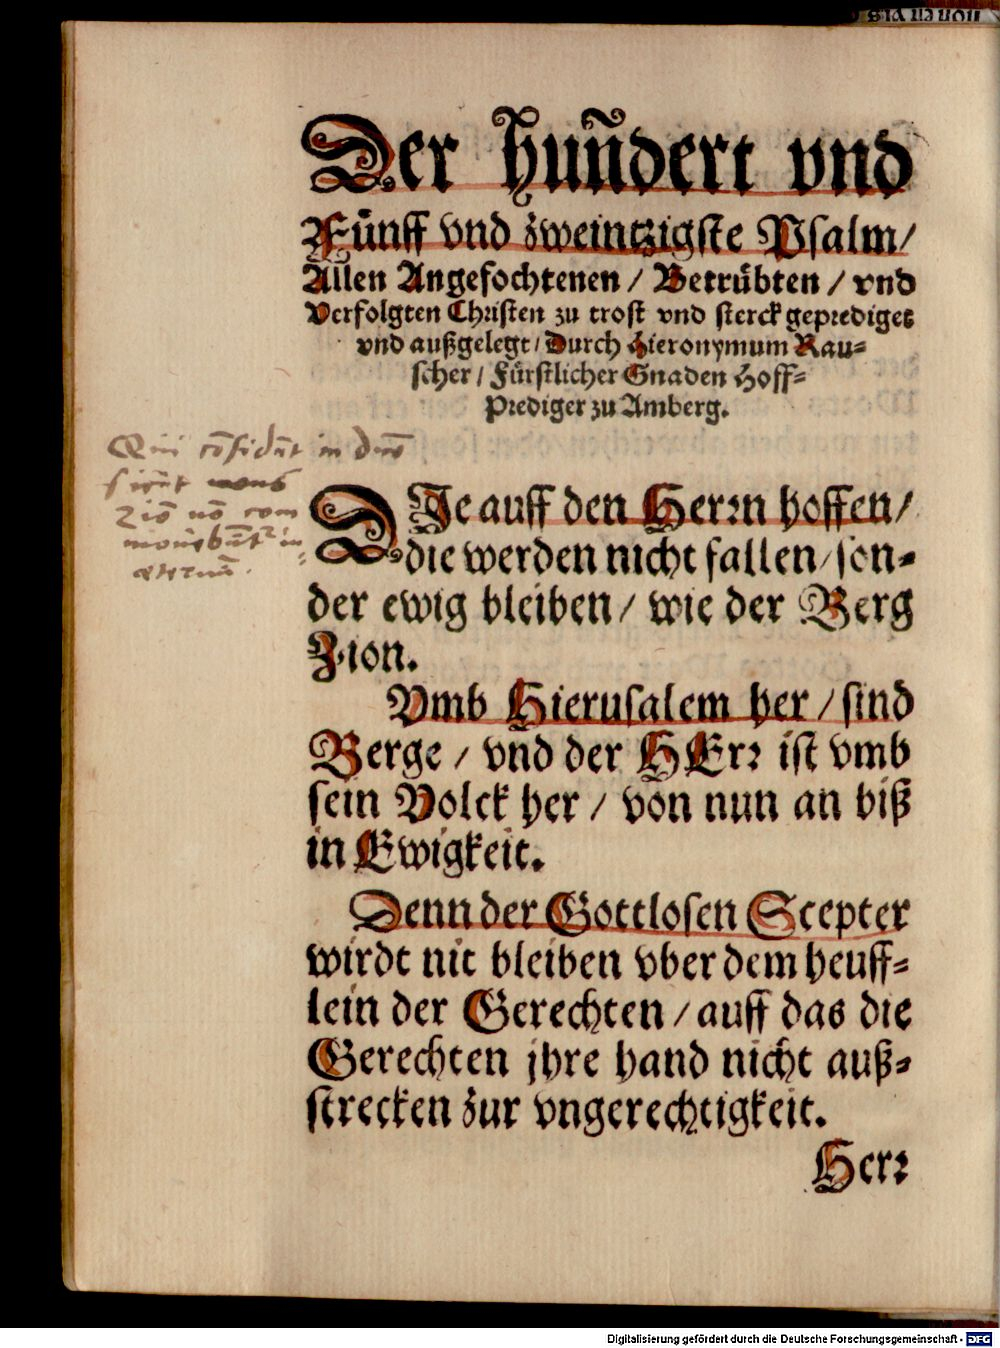 Der hun̄dert vnd
Fünff vnd zweintzigste Psalm/
Allen Angefochtenen / Betrübten / vnd
Verfolgten Christen zu trost vnd sterck geprediget
vnd außgelegt / Durch Hieronymum Rau=
scher / Fürstlicher Gnaden Hoff=
Prediger zu Amberg.
Qui cōfidūt in dn̄o
sicut mons
Ziō nō com
mouebūt in
æternū.
DIe auff den Herrn hoffen /
die werden nicht fallen / son=
der ewig bleiben / wie der Berg
Zion.
Vmb Hierusalem her / sind
Berge / vnd der HErr ist vmb
sein Volck her / von nun an biß
in Ewigkeit.
Denn der Gottlosen Scepter
wirdt nit bleiben vber dem heuff=
lein der Gerechten / auff das die
Gerechten jhre hand nicht auß=
strecken zur vngerechtigkeit.
Herr
Digitalisierung gefördert durch die Deutsche Forschungsgemeinschaft - DFG